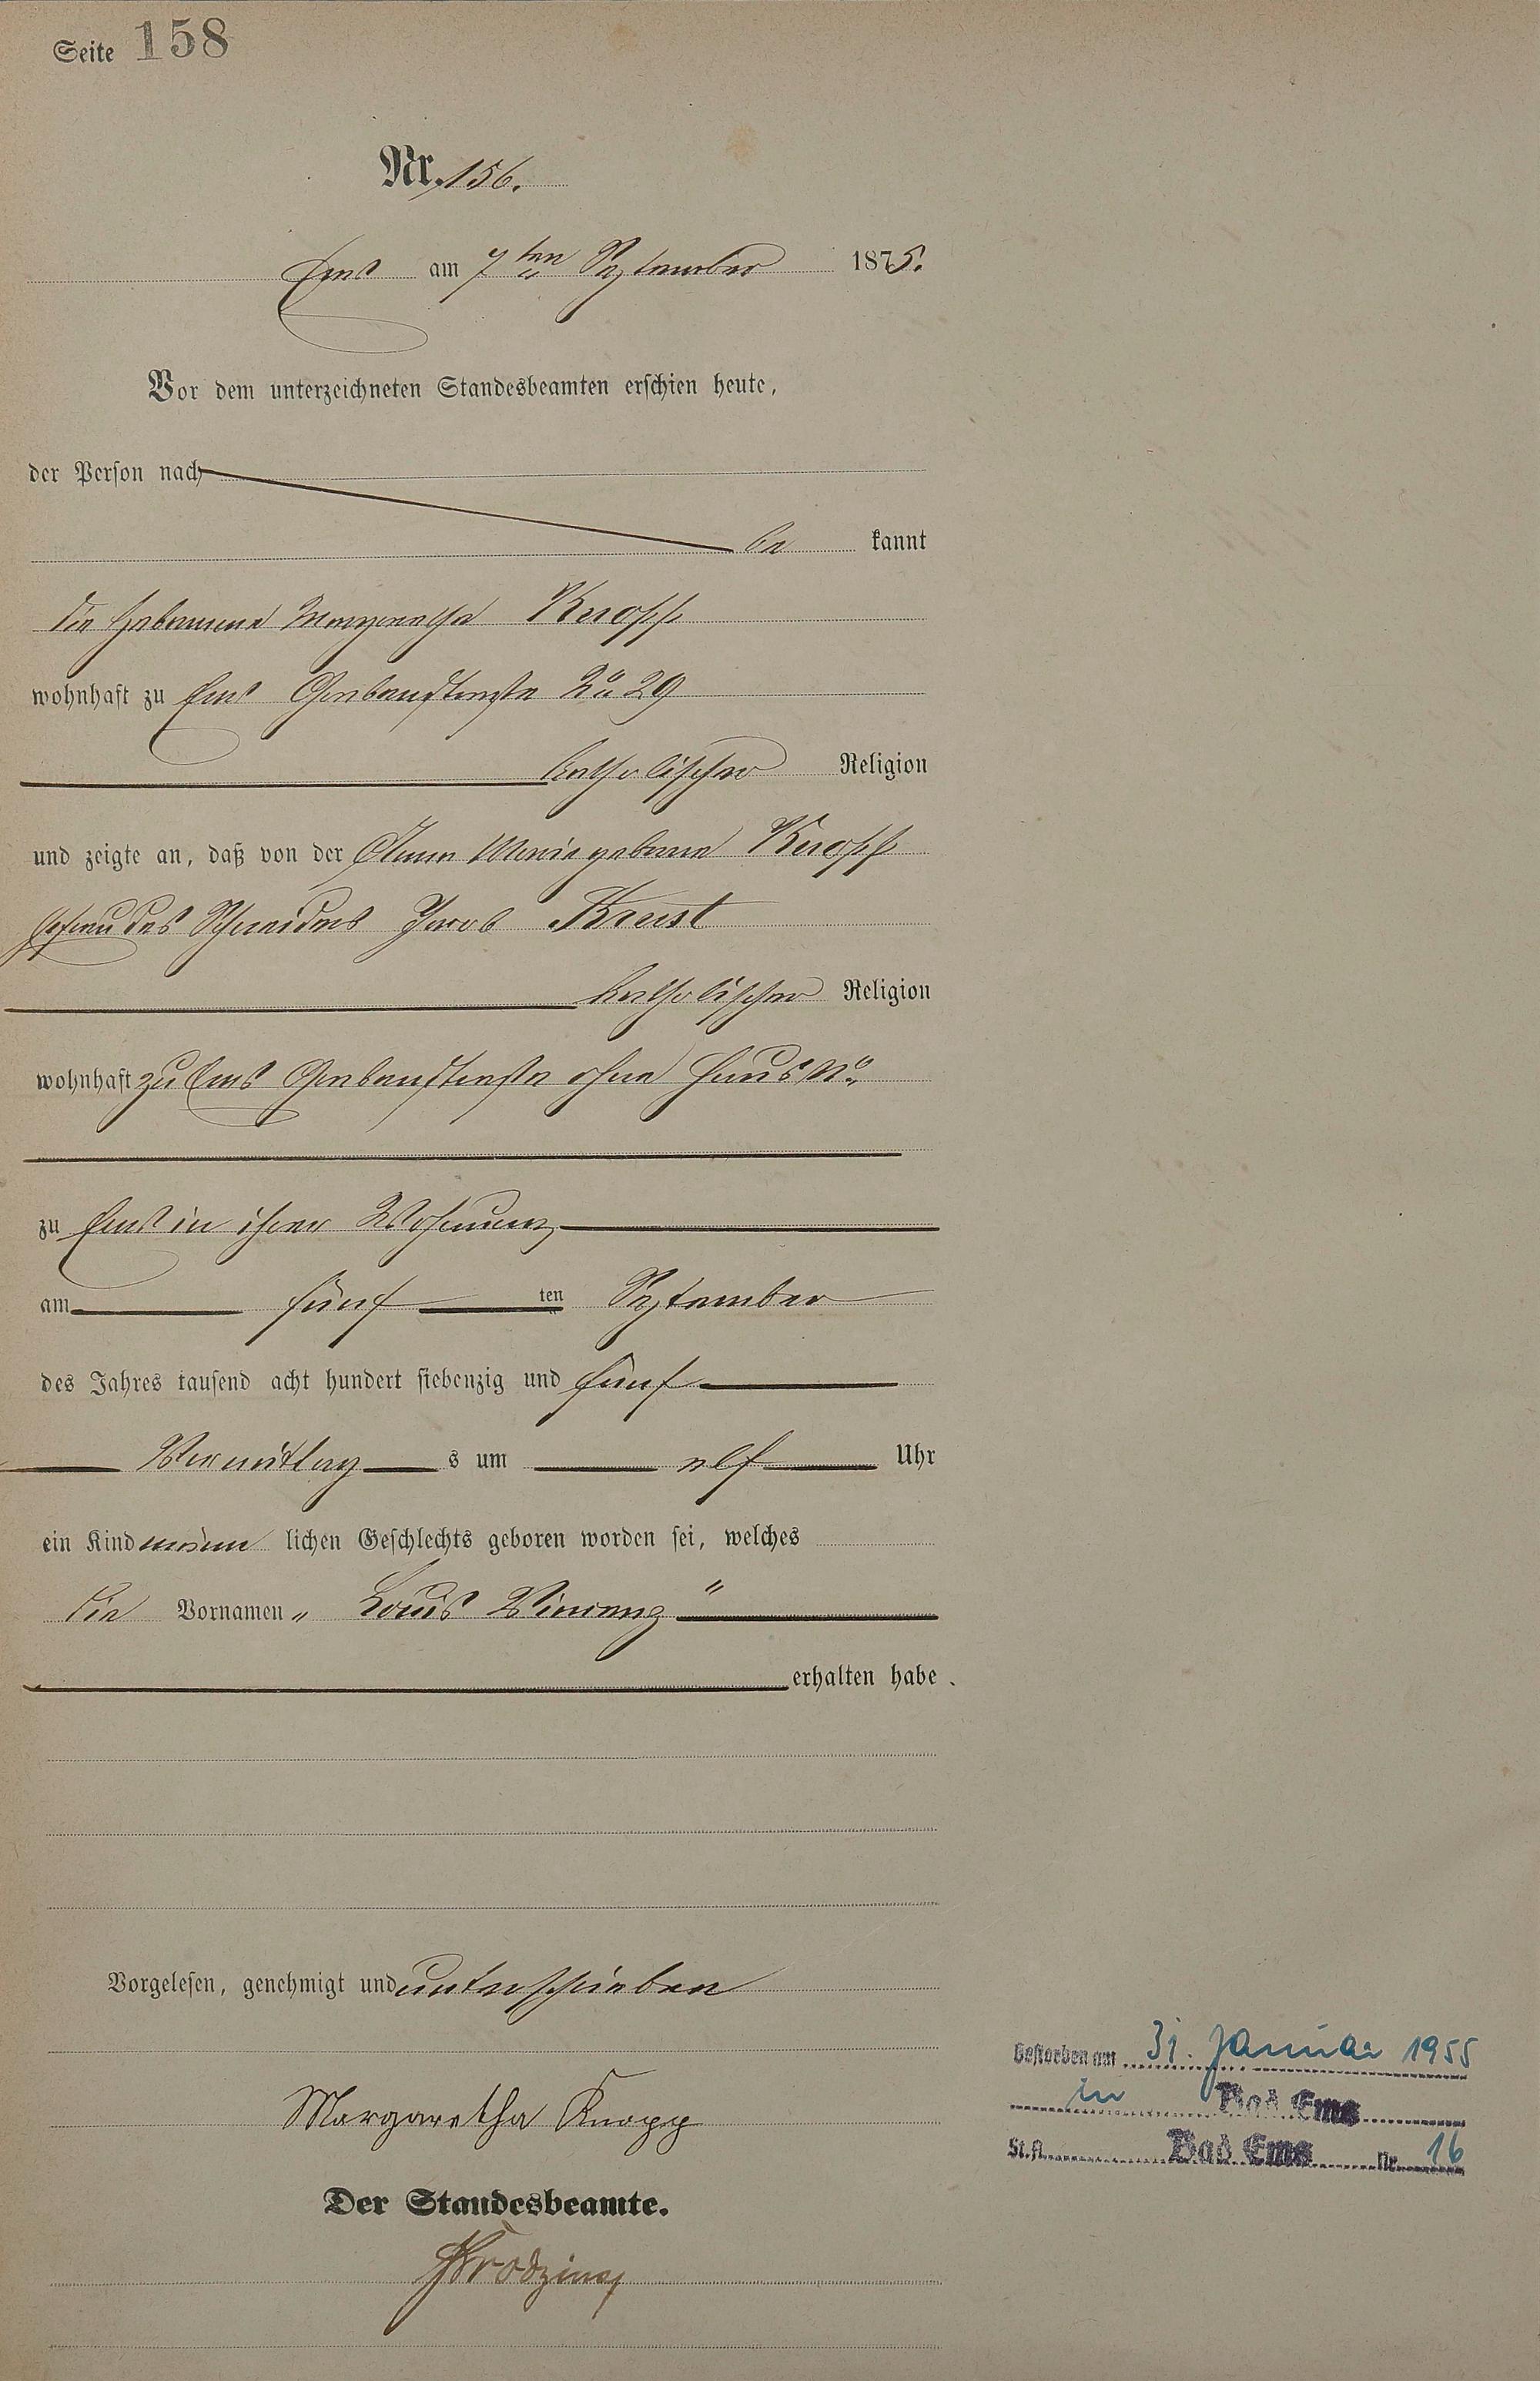 Seite 158
Nr. 156.
Ems am 7ten September 1875.
Vor dem unterzeichneten Standesbeamten erschien heute,
der Person nach
be kannt
die Hebamme Margaretha Knopp
wohnhaft zu Ems Grabenstraße No 29
katholischer Religion
und zeigte an, daß von der Anna Maria geborne Knopp
Ehefrau des Schneiders Jacob
katholischer Religion
wohnhaft zu Ems Grabenstraße ohne Haus No
zu Ems in ihrer Wohnung
am fünf ten September
des Jahres tausend acht hundert siebenzig und fünf
Vormittag s um elf Uhr
ein Kind männ lichen Geschlechts geboren worden sei, welches
die Vornamen „ Louis Vinzenz "
erhalten habe.
Vorgelesen, genehmigt und unterschrieben
Margaretha Knopp
Der Standesbeamte.
Gestorben am 31. Januar 1955
in Bad Ems
St.A. Bad Ems Nr. 16